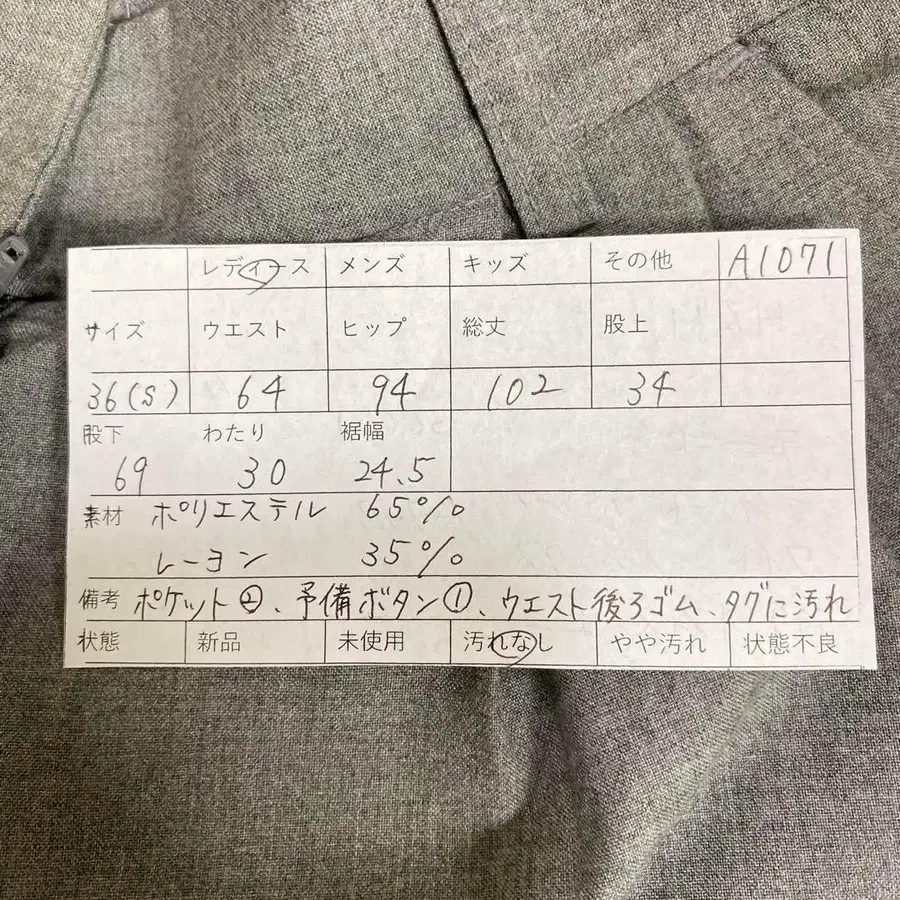 レディース メンズ キッズ その他 A1071
サイズ ウエスト ヒップ 総丈 股上
36(S) 64 94 102 34
股下 わたり 裾幅
69 30 24.5
素材 ポリエステル 65%
レーヨン 35%
備考 ポケット②、予備ボタン①、ウエスト後ろゴム、タグに汚れ
状態 新品 未使用 汚れなし やや汚れ 状態不良